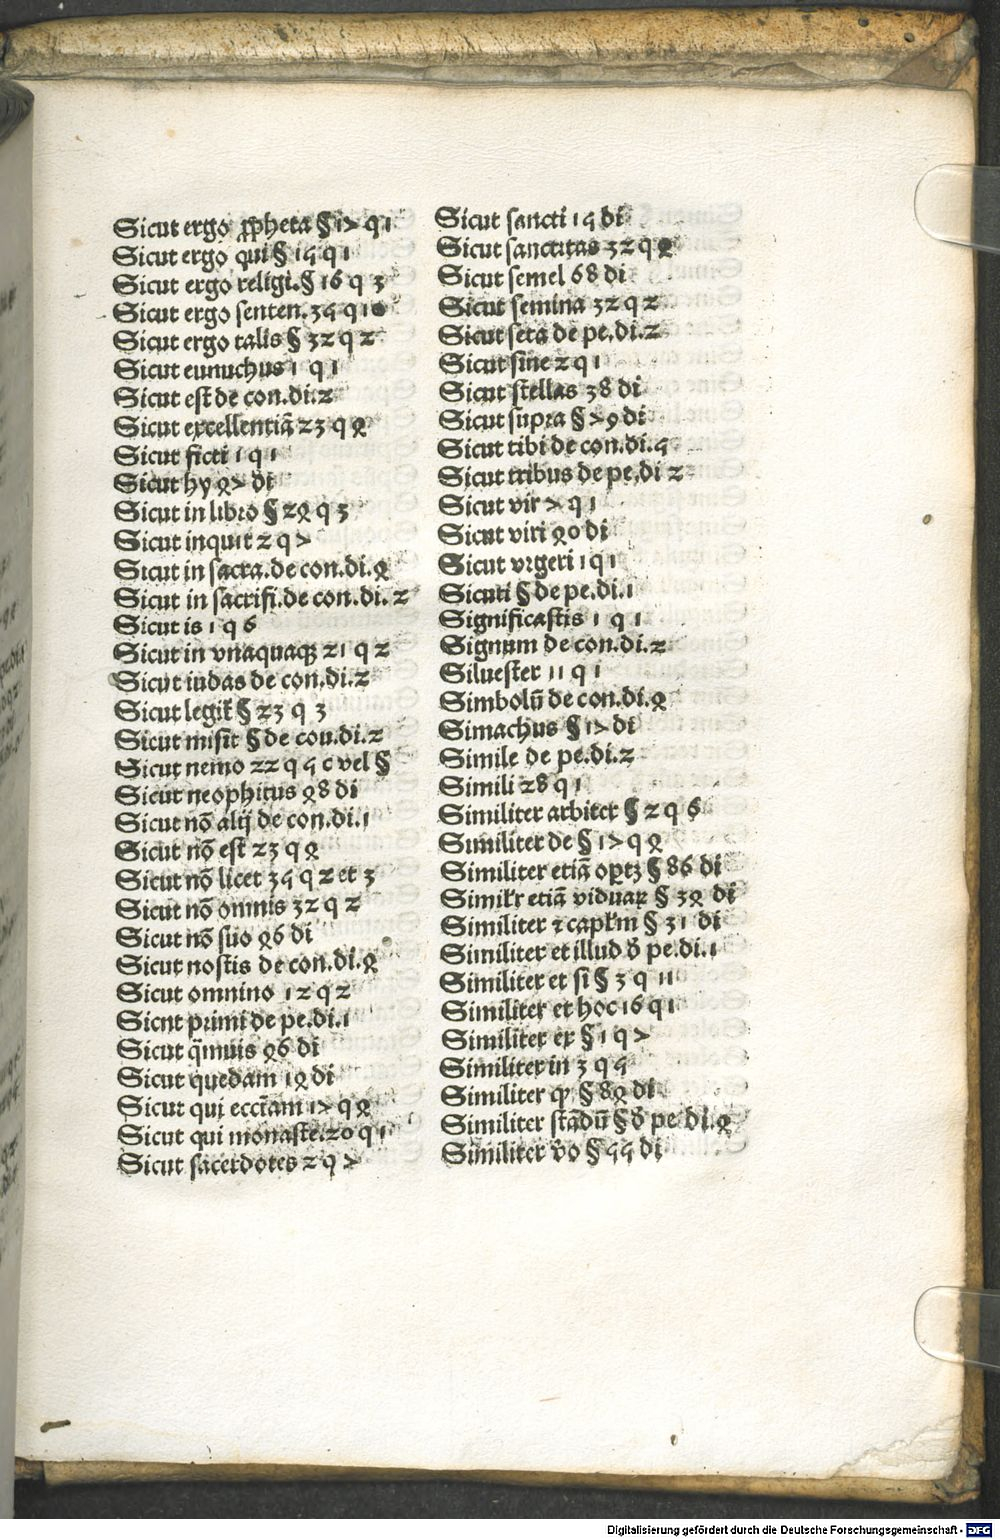 Sicut ergo ꝓpheta § 17 q 1
Sicut ergo qui § 15 q 1
Sicut ergo religi. § 16 q 3
Sicut ergo senten. 35 q 10
Sicut ergo talis § 32 q 2
Sicut eunuchus 1 q 1
Sicut est de con.di.2
Sicut excellentiā 23 q 4
Sicut ficti 1 q 1
Sicut hy 47 di
Sicut in libro § 24 q 3
Sicut inquit 2 q 7
Sicut in sacra.de con.di.4
Sicut in sacrifi.de con.di.2
Sicut is 1 q 6
Sicut in vnaquaqꝫ 21 q 2
Sicut iudas de con.di.2
Sicut legit̄ § 23 q 3
Sicut misit § de cou.di.2
Sicut nemo 22 q 5 c vel §
Sicut neophitus 48 di
Sicut nō alij de con.di.1
Sicut nō est 23 q 4
Sicut nō licet 35 q 2 et 3
Sicut nō omnis 32 q 2
Sicut nō suo 46 di
Sicut nostis de con.di.4
Sicut omnino 12 q 2
Sicnt primi de pe.di.1
Sicut q̄muis 46 di
Sicut quedam 14 di
Sicut qui eccl̄iam 17 q 4
Sicut qui monaste.20 q 1
Sicut sacerdotes 2 q 7
Sicut sancti 15 di
Sicut sanctitas 32 q 4
Sicut semel 68 di
Sicut semina 32 q 2
Sicut seta de pe.di.2
Sicut sine 2 q 1
Sicut stellas 38 di
Sicut supra § 79 di
Sicut tibi de con.di.5
Sicut tribus de pe.di 2
Sicut vir 7 q 1
Sicut viri 40 di
Sicut vrgeri 1 q 1
Sicuti § de pe.di.1
Significastis 1 q 1
Signum de con.di.2
Siluester 11 q 1
Simbolū de con.di.4
Simachus § 17 di
Simile de pe.di.2
Simili 28 q 1
Similiter arbiter § 2 q 6
Similiter de § 17 q 4
Similiter etiā oꝑtꝫ § 86 di
Simil̓r etiā viduaꝝ § 34 di
Similiter ⁊ capl̓m § 31 di
Similiter et illud ð pe.di.1
Similiter et si § 3 q 11
Similiter et hoc 16 q 1
Similiter ex § 1 q 7
Similiter in 3 q 5
Similiter ꝙ § 84 di
Similiter stādū § ð pe.di.4
Similiter v̄o § 55 di
Digitalisierung gefördert durch die Deutsche Forschungsgemeinschaft - DFG